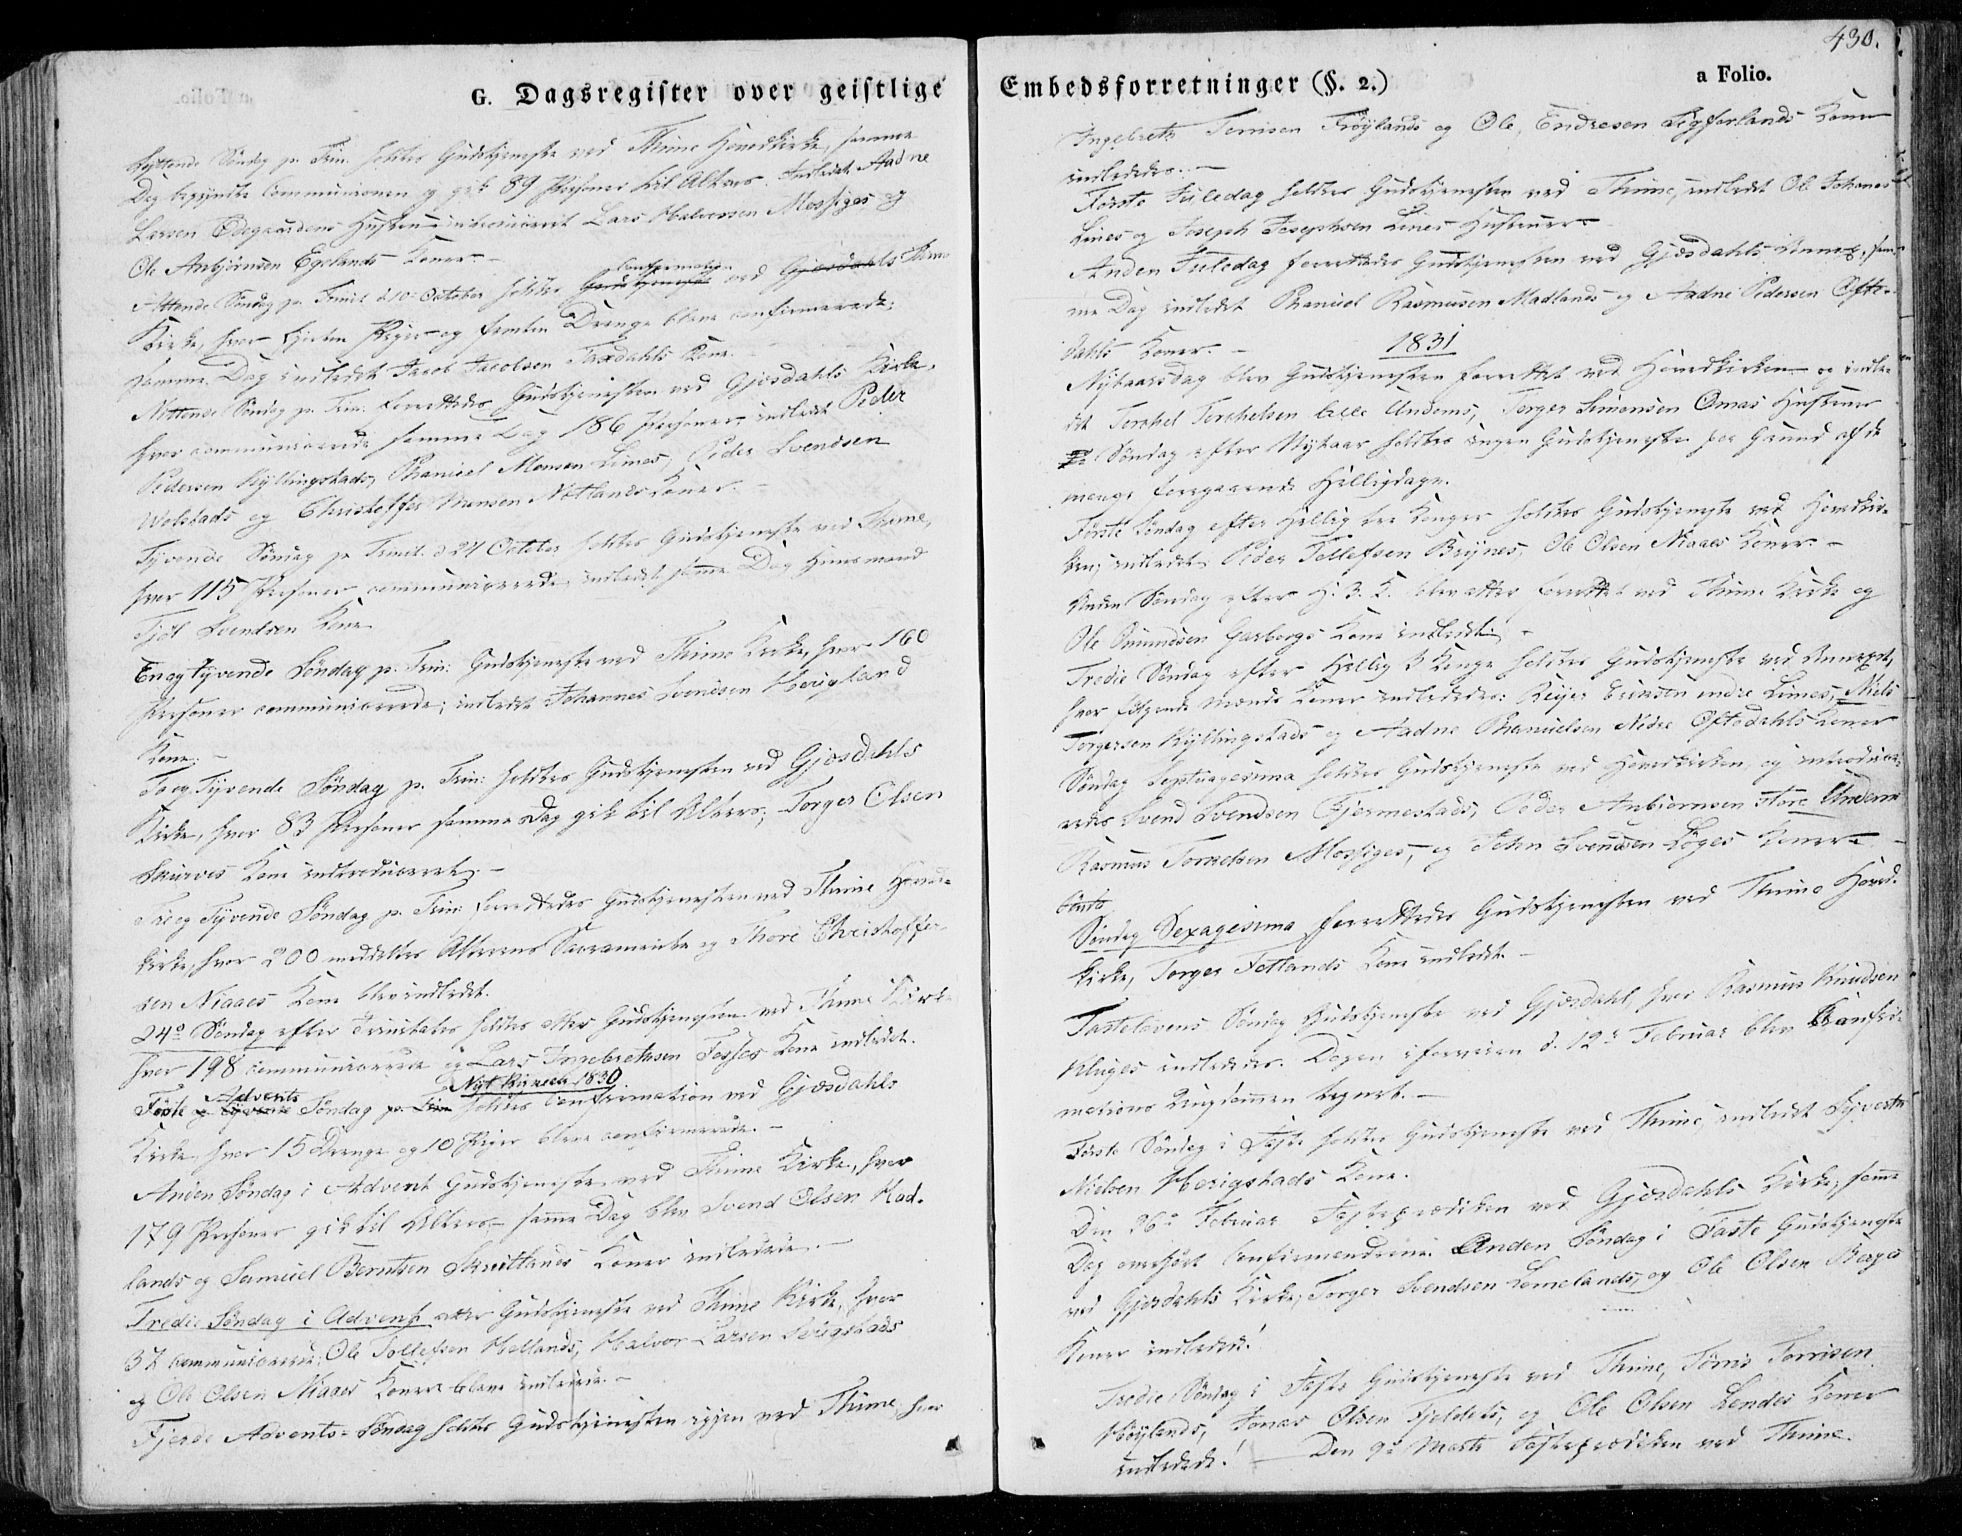 G. Dagsregister over geistlige
Syttende Søndag p. Trin. holdtes Gudstjeneste ved Thime Hovedkirke, samme
Dag begyndte Communionen og gik 89 Personer til Alters. Indledet Aadne
Larsen Ødegaardens Hustru introduceret Lars Halvorsen Mossiges og
Ole Anbjörnsen Egelands Koner. -
Attende Søndag p. Trinit. d 10de October holdtes Gudstjeneste Confirmation ved Gjæsdahls Thime
Kirke, hvor Piger og femten Drenge bleve confirmerede;
samme Dag indledet Jacob Jacobsen Taxdahls Kone.
Nittende Søndag p. Trin: forrettedes Gudstjenesten ved Gjæsdahls Kirke,
hvor communicerede samme Dag 186 Personer, indledt Peder
Pedersen Kyllingstads, Thaniel Monsen Limes, Peder Svendsen
Wolstads og Christoffer Monsen Nætlands Koner. -
Tyvende Søndag p Trinit. d 24 October holdtes Gudstjeneste ved Thime,
hvor 115 Personer communicerede, indledet samme Dag Huusmand
Tjöl Svendsen Kone
Enogtyvende Søndag p. Trin: Gudstjeneste ved Thime Kirke, hvor 160
Personer communicerede; indledet Johannes Svendsen Høigland
Kone. -
Toog Tyvende Søndag p. Trin: holdtes Gudstjenesten ved Gjæsdahls
Kirke, hvor 83 Personer samme Dag gik til Alters; Torger Olsen
Skurves Kone introduceret. -
Treog Tyvende Søndag p. Trin: forrettedes Gudstjenesten ved Thime Hoved-
kirke, hvor 200 meddeltes Alterens Sacramente og Thore Christoffer-
sen Niaaes Kone blev indledet.
24de Søndag efter Trinitatis holdtes atter Gudstjenesten ved Thime Kirke
hvor 198 communicerede og Lars Ingebrethsen Fosses Kone indledet.
Nyt Kirkeaar 1830
Første og Tyvende Advents Søndag p. Trin holdtes Confirmation ved Gjæsdahls
Kirke, hvor 15 Drenge og 10 Piger bleve confirmerede. -
Anden Søndag i Advent Gudstjeneste ved Thime Kirke, hvor
179 Personer gik til Alters - samme Dag blev Svend Olsen Had-
lands og Samuel Berntsen Skrettlands Koner indledede. -
Tredie Søndag i Advent atter Gudstjeneste ved Thime Kirke, hvor
37 communicerede; Ole Tollefsen Hellands, Halvor Larsen Serigstads
og Ole Olsen Niaaes Koner bleve indledede. -
Fjerde Advents-Søndag holdtes Gudstjenesten igjen ved Thime, hvor
430.
Embedsforretninger (§. 2.)
a Folio.
Ingebreth Tørrisen Frøylands og Ole Endresen Ligforlands Koner
indlededes. -
Første Juledag holdtes Gudstjenesten ved Thime, indledet Ole Johannes
Limes og Joseph Josephsen Lines Hustruer. -
Anden Juledag forrettedes Gudstjenesten ved Gjæsdahls Annex, sam-
me Dag indledet Thaniel Rasmusen Madlands og Aadne Pedersen Ofte-
dahls Koner. -
1831
Nytaarsdag blev Gudstjenesten forrettet ved Hovedkirken og indle-
det Torchel Torchelsen lille Undems, Torger Simonsen Omas Hustruer
Søndag efter Nytaar holdtes ingen Gudstjeneste paa Grund af de
mange foregaaende Helligdage.
Første Søndag efter Hellig tre Konger holdtes Gudstjeneste ved Hovedkir-
ken, indledet Peder Tollefsen Brynes, Ole Olsen Niaaes Koner. -
Anden Søndag efter H. 3. K. blev atter forrettet ved Thime Kirke og
Ole Omundsen Garborgs Kone indledet. -
Tredie Søndag efter Hellig 3 Konge holdtes Gudstjeneste ved Annexet,
hvor følgende Mænds Koner indlededes: Reijer Eriksen indre Limes, Niels
Torgersen Kyllingstads og Aadne Thanielsen Nedre Oftedahls Koner
Søndag Septuagesima holdtes Gudstjeneste ved Hovedkirken, og introduce-
redes Svend Svendsen Fjermestads, Peder Anbiørnsen store Undems
Rasmus Tørresen Mossiges, og John Svendsen Løges Koner -
Søndag Sexagesima forrettedes Gudstjenesten ved Thime Hoved-
kirke, Torger Fotlands Kone indledet. -
Fastelavens Søndag Gudstjeneste ved Gjæsdahl, hvor Rasmus Knudsen
Kluges indlededes. Dagen iforveien d. 12te Februar blev Confir-
mations Ungdommen tegnet. -
Første Søndag i Faste holdtes Gudstjeneste ved Thime, indledet Syvert
Nielsen Herigstads Kone.
Den 26de Februar Fasteprædiken ved Gjæsdahls Kirke, samme
Dag overhørt Confirmanderne. Anden Søndag i Faste Gudstjeneste
ved Gjæsdahls Kirke, Torger Svendsen Lomelands, og Ole Olsen Berge
Koner indledede!
Tredie Søndag i Faste Gudstjeneste ved Thime, Tørris Tørrisen
Høylands, Jonas Olsen Fjeldets, og Ole Olsen Lendes Koner
indledede! - Den 9de Marts Fasteprædiken ved Thime.